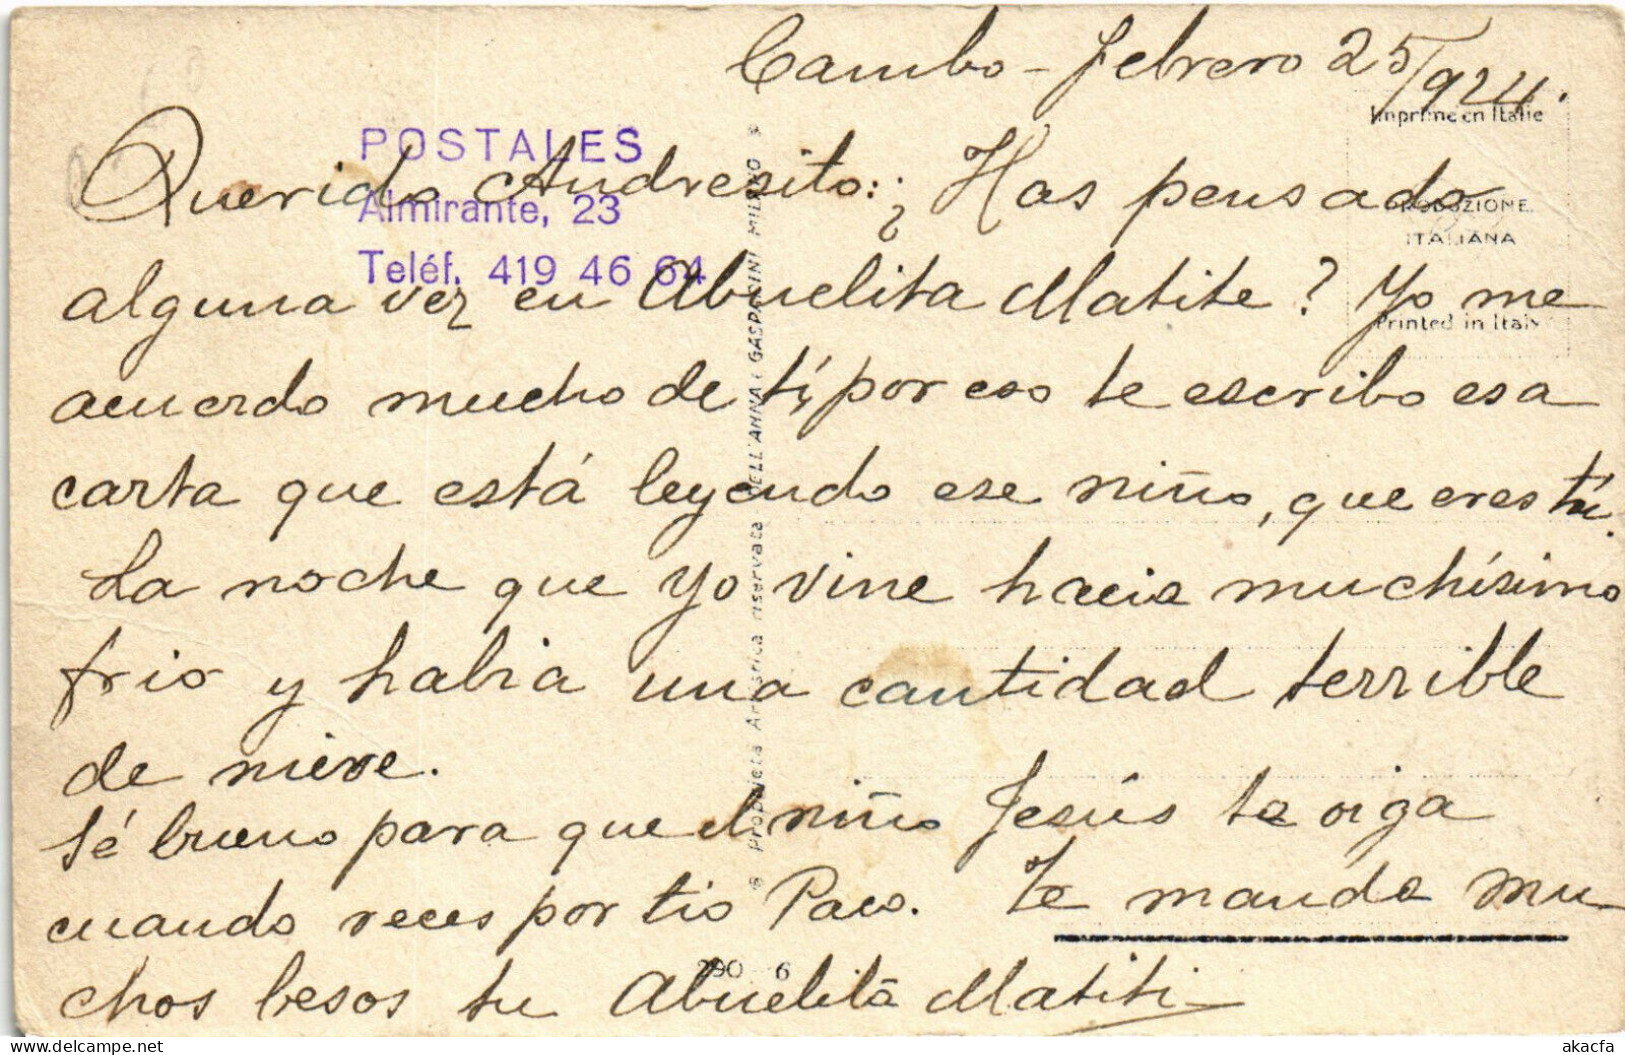 Cambo - febrero 25/924.
Imprimé en Italie
POSTALES
Querido Andresito: ¿Has pensado
Almirante, 23
PRODUZIONE
ITALIANA
Teléf. 419 46 64
alguna vez en Abuelita Matite? Yo me
Printed in Italy
acuerdo mucho de tí, por eso te escribo esa
carta que está leyendo ese niño, que eres tú.
La noche que yo vine hacia muchísimo
frio y habia una cantidad terrible
de nieve.
Sé bueno para que el niño Jesús te oiga
cuando reces por tio Paco. Te manda mu-
chos besos tu Abuelita Matiti
290 - 6
Proprietà Artistica riservata DELL'ANNA & GASPARINI MILANO
akacfa